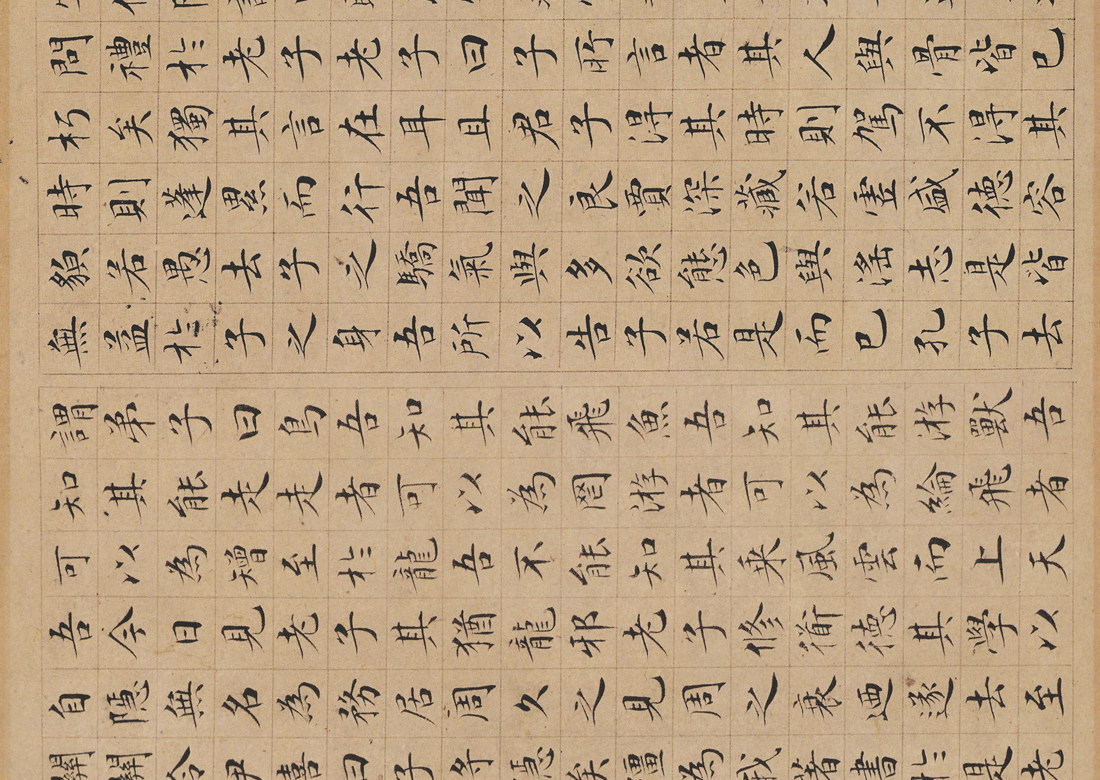 問禮扵老子老子曰子所言者其人與骨皆已
朽矣獨其言在耳且君子得其時則駕不得其
時則蓬累而行吾聞之良賈深藏若虛盛德容
貌若愚去子之驕氣與多欲態色與淫志是皆
無益扵子之身吾所以告子若是而已孔子去
謂弟子曰鳥吾知其能飛魚吾知其能游獸吾
知其能走走者可以為罔游者可以為綸飛者
可以為矰至扵龍吾不能知其乗風雲而上天
吾今日見老子其猶龍邪老子修衜德其學以
自隱無名為務居周久之見周之衰迺遂去至
關關令尹喜曰子將隱矣彊為我著書扵是老